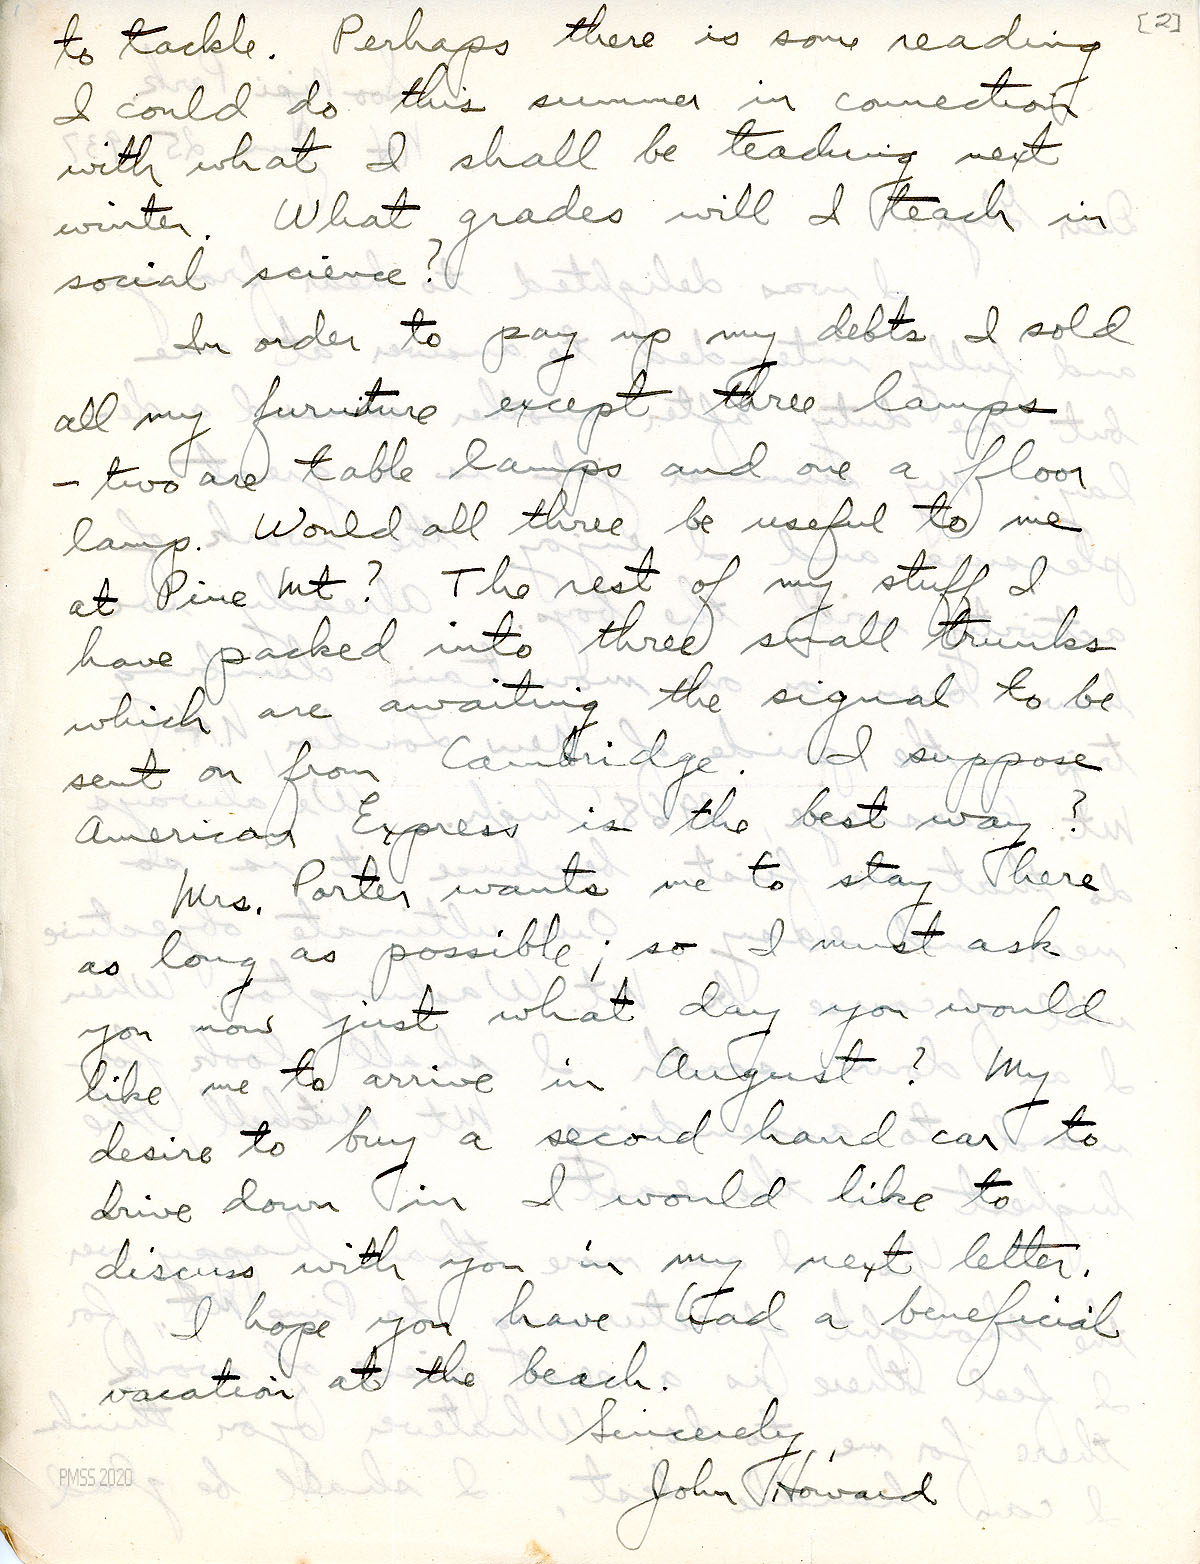 [2]
to tackle. Perhaps there is some reading
I could do this summer in connection
with what I shall be teaching next
winter. What grades will I teach in
social science?
In order to pay up my debts I sold
all my furniture except three lamps
- two are table lamps and one a floor
lamp. Would all three be useful to me
at Pine Mt? The rest of my stuff I
have packed into three small trunks
which are awaiting the signal to be
sent on from Cambridge. I suppose
American Express is the best way?
Mrs. Porter wants me to stay here
as long as possible; so I must ask
you now just what day you would
like me to arrive in August? My
desire to buy a second hand car to
drive down in I would like to
discuss with you in my next letter.
I hope you have had a beneficial
vacation at the beach.
Sincerely,
John Howard
PMSS 2020